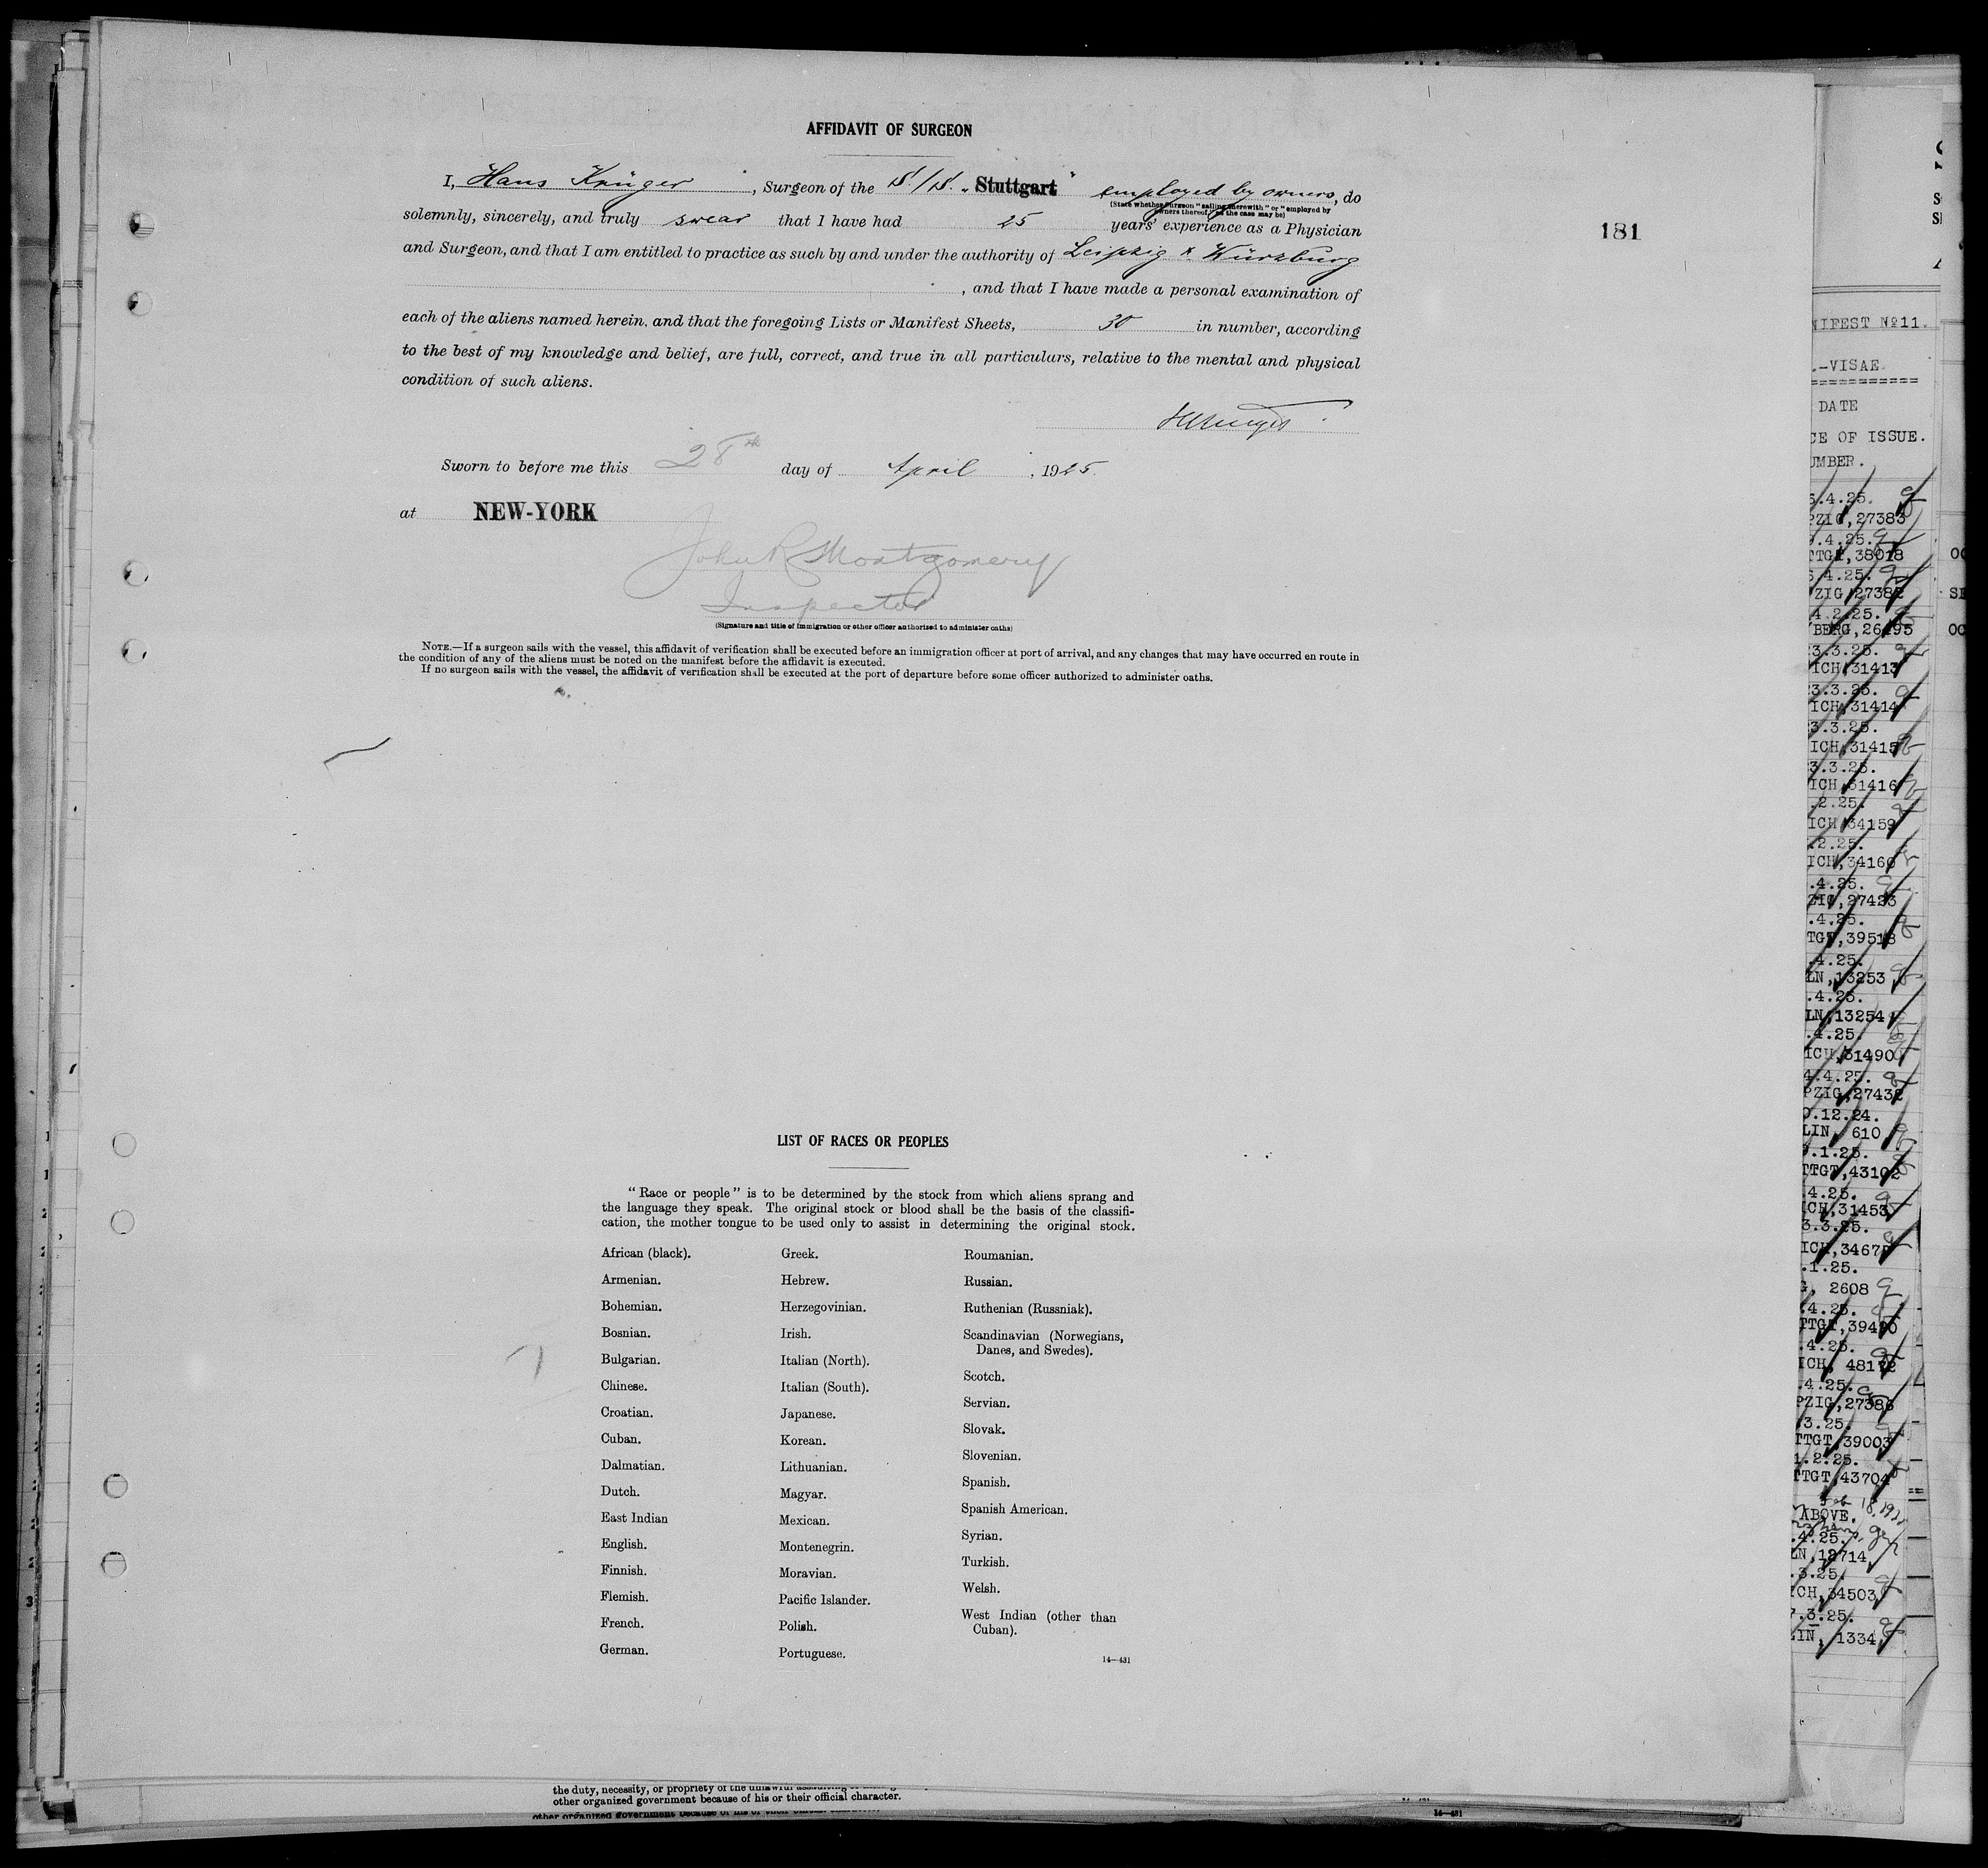 AFFIDAVIT OF SURGEON
I, Hans Krüger, Surgeon of the S./S. „Stuttgart" employed by owners, do
(State whether surgeon "sailing therewith" or "employed by owners thereof," as the case may be)
solemnly, sincerely, and truly swear that I have had 25 years' experience as a Physician
and Surgeon, and that I am entitled to practice as such by and under the authority of Leipzig & Würzburg
, and that I have made a personal examination of
each of the aliens named herein, and that the foregoing Lists or Manifest Sheets, 30 in number, according
to the best of my knowledge and belief, are full, correct, and true in all particulars, relative to the mental and physical
condition of such aliens.
Sworn to before me this 28th day of April, 1925.
at NEW-YORK
John R Montgomery
Inspector
(Signature and title of immigration or other officer authorized to administer oaths)
NOTE.—If a surgeon sails with the vessel, this affidavit of verification shall be executed before an immigration officer at port of arrival, and any changes that may have occurred en route in
the condition of any of the aliens must be noted on the manifest before the affidavit is executed.
If no surgeon sails with the vessel, the affidavit of verification shall be executed at the port of departure before some officer authorized to administer oaths.
181
LIST OF RACES OR PEOPLES
"Race or people" is to be determined by the stock from which aliens sprang and
the language they speak. The original stock or blood shall be the basis of the classifi-
cation, the mother tongue to be used only to assist in determining the original stock.
African (black).
Armenian.
Bohemian.
Bosnian.
Bulgarian.
Chinese.
Croatian.
Cuban.
Dalmatian.
Dutch.
East Indian
English.
Finnish.
Flemish.
French.
German.
Greek.
Hebrew.
Herzegovinian.
Irish.
Italian (North).
Italian (South).
Japanese.
Korean.
Lithuanian.
Magyar.
Mexican.
Montenegrin.
Moravian.
Pacific Islander.
Polish.
Portuguese.
Roumanian.
Russian.
Ruthenian (Russniak).
Scandinavian (Norwegians,
Danes, and Swedes).
Scotch.
Servian.
Slovak.
Slovenian.
Spanish.
Spanish American.
Syrian.
Turkish.
Welsh.
West Indian (other than
Cuban).
14—431
other organized government because of his or their official character.
14—431
NIFEST Nº11.
.-VISAE.
DATE
CE OF ISSUE.
UMBER.
PZIG,27383
TTGT,38018
ZIG,27382
BERG,26195
ICH,31413
ICH,31414
ICH,31415
ICH,31416
ICH,34159
ICH,34160
ZIG,27423
TGT,39518
LN,13253
LN,13254
ICH,31490
PZIG,27432
LIN, 610
TTGT,43102
ICH,31453
G, 2608
TTGT,39490
ICH, 48172
PZIG,27386
TTGT,39003
TTGT,43704
ABOVE.
LN,12714
ICH,34503
LIN, 1334